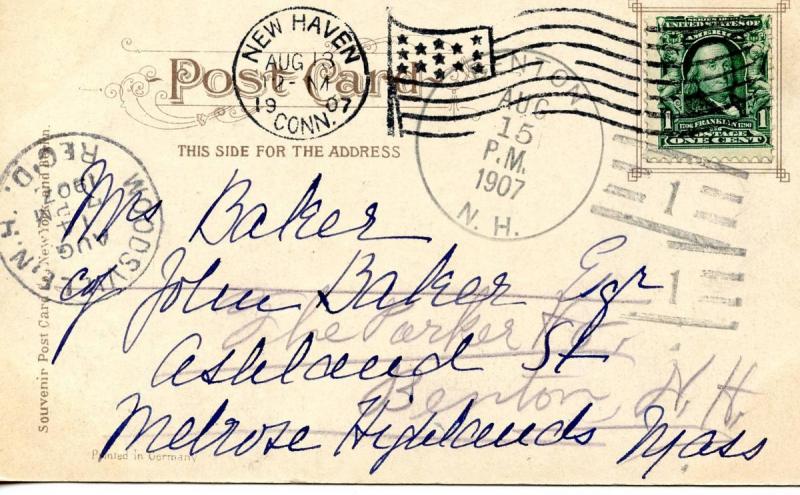 NEW HAVEN
AUG 13
12-M
1907
CONN.
Post Card
THIS SIDE FOR THE ADDRESS
BENTON
AUG
15
P.M.
1907
N. H.
SERIES 1902
UNITED STATES OF
AMERICA
1706 FRANKLIN 1790
1 1
POSTAGE
ONE CENT
1
1
WOODSVILLE, N.H.
AUG
1907
REC'D.
Mrs Baker
c/o John Baker Esqr
Ashland St
Melrose Highlands Mass
The Parker Ho.
Benton, N. H.
Souvenir Post Card Co., New York and Berlin.
Printed in Germany